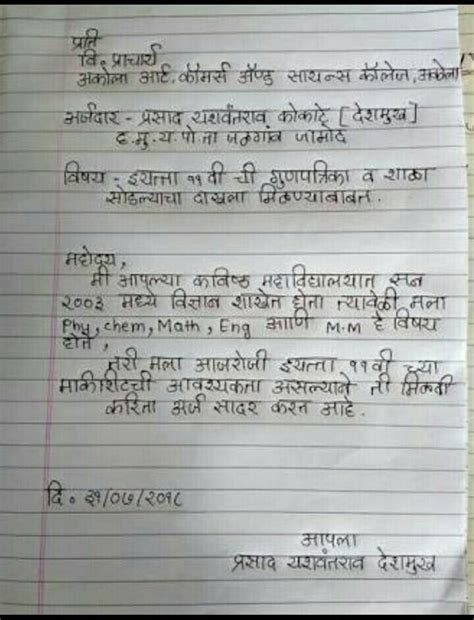 प्रति
वि. प्राचार्य
अकोला आर्ट. कॉमर्स अ‍ॅण्ड सायन्स कॉलेज, अकोला
अर्जदार - प्रसाद यशवंतराव कोकाटे [देशमुख]
ह. मु. य. पो. ता जळगांव जामोद
विषय - इयत्ता ११ वी ची गुणपत्रिका व शाळा
सोडल्याचा दाखला मिळण्याबाबत.
महोदय,
मी आपल्या कनिष्ठ महाविद्यालयात सन
२००३ मध्ये विज्ञान शाखेत होतो त्यावेळी मला
Phy, chem, Math, Eng आणि M.M हे विषय
होते,
तरी मला आजरोजी इयत्ता ११वी च्या
मार्कशिटची आवश्यकता असल्याने ती मिळवी
करिता अर्ज सादर करत आहे.
दि. ३१/०७/२०१८
आपला
प्रसाद यशवंतराव देशमुख